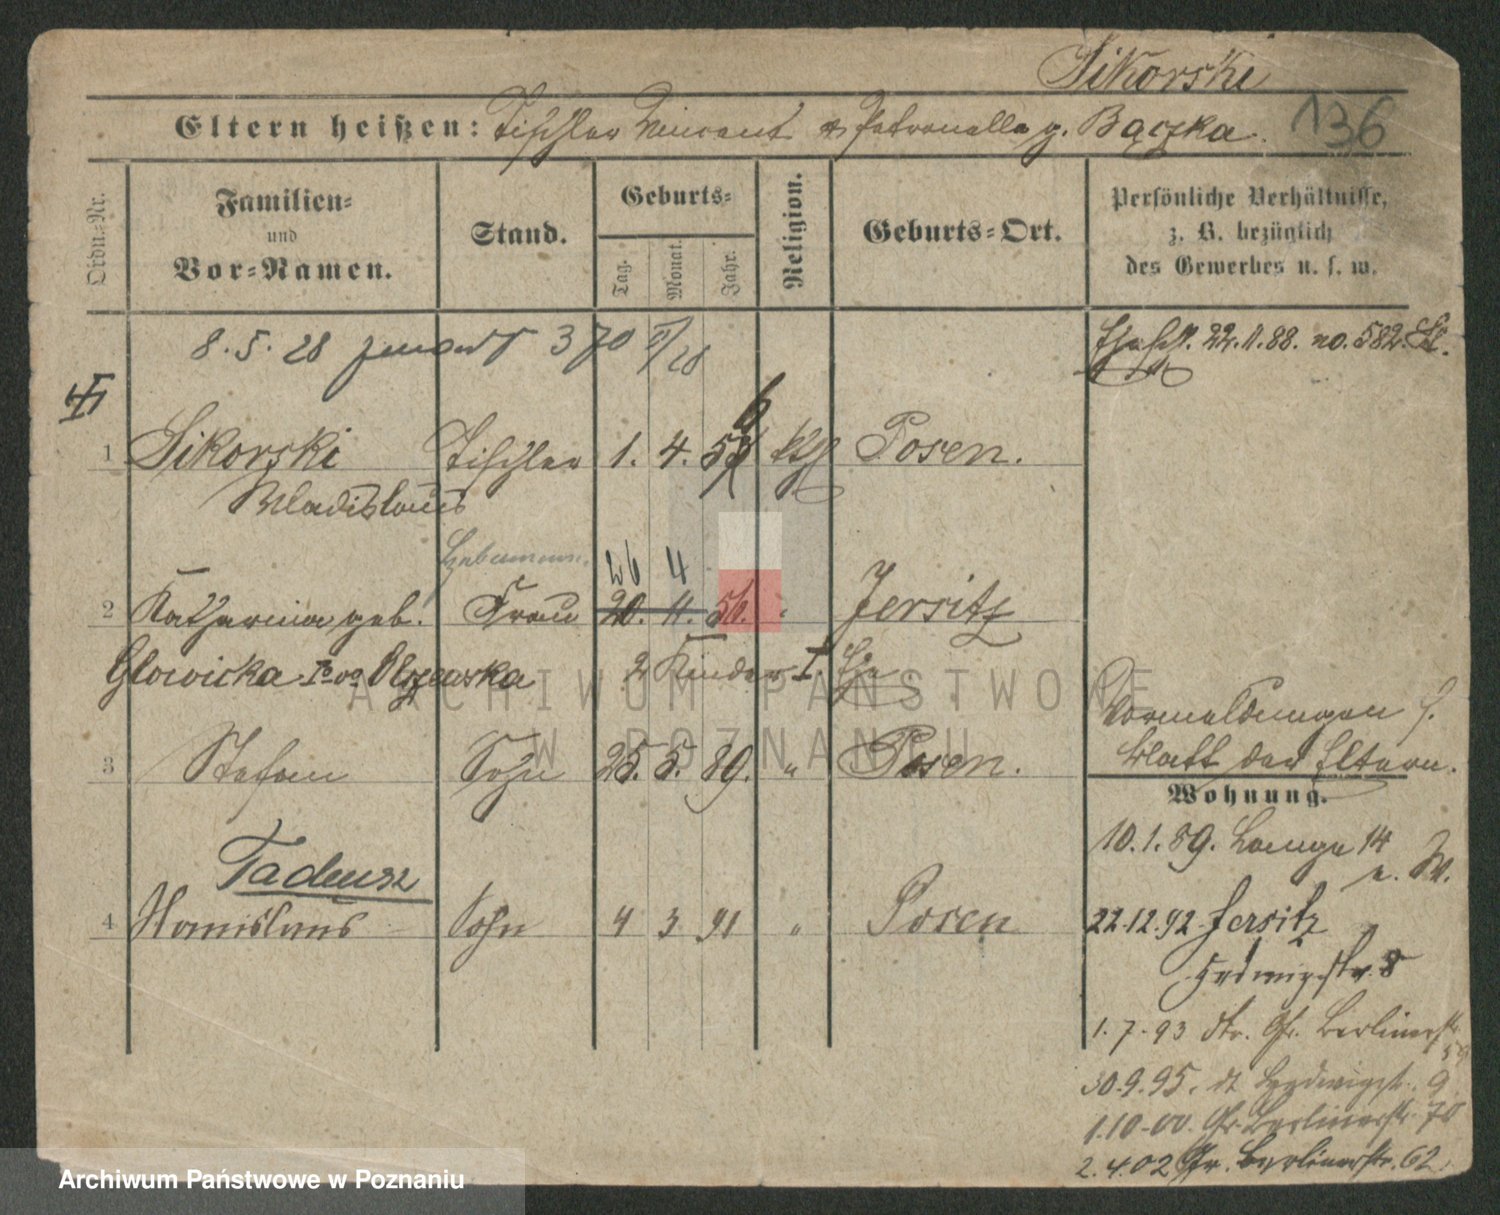 Sikorski
Eltern heißen: Tischler Vincent & Petronella g. Bączka.
136
Ordn.-Nr.
Familien-
und
Vor-Namen.
Stand.
Geburts-
Tag. Monat. Jahr.
Religion.
Geburts-Ort.
Persönliche Verhältnisse,
z. B. bezüglich
des Gewerbes u. s. w.
8. 5. 28 370
22.11.88. no. 582.
1 Sikorski Tischler 1. 4. 6 kth Posen.
Wladislaus
Hebamme.
26 4
2 Katharina geb. Frau 20. 11. 56. " Jersitz
Glowicka Olszewska 2 Kinder I. Ehe
3 Stefan Sohn 25. 5. 89. " Posen.
Vormeldungen s.
Blatt der Eltern.
Wohnung.
Tadeusz
4 Stanislaus Sohn 4 3 91 " Posen
10.1.89. Lange 14
n. W.
22.12.92 Jersitz
Hedwigstr. 8
1. 7. 93 dtr. Gr. Berlinerstr
59
30.9.95. dt Hedwigst. 9
1.10.00. Gr. Berlinerstr. 70
2. 4. 02 Gr. Berlinerstr. 62
ARCHIWUM PAŃSTWOWE
W POZNANIU
Archiwum Państwowe w Poznaniu